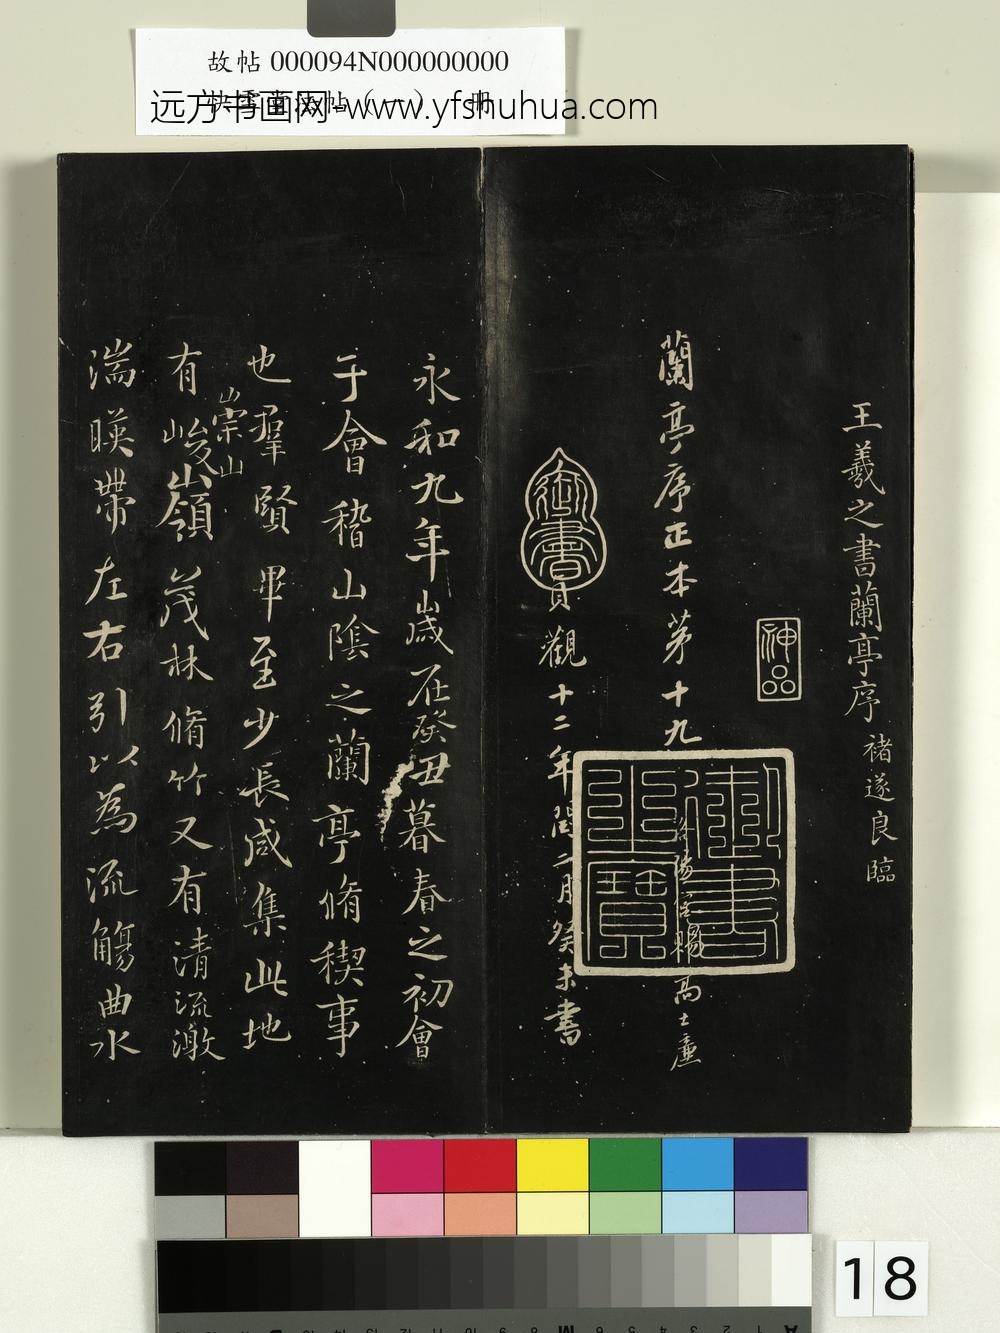 故帖 000094N000000000
快雪堂法帖（一） 册
远方书画网-www.yfshuhua.com
王羲之書蘭亭序 褚遂良臨
神品
蘭亭序正本苐十九
賜高士廉
御書之寶
御書
貞觀十二年閏二月癸未書
永和九年歲在癸丑暮春之初會
于會稽山陰之蘭亭脩稧事
也羣賢畢至少長咸集此地
有崇山峻嶺茂林脩竹又有清流激
湍暎帶左右引以為流觴曲水
18